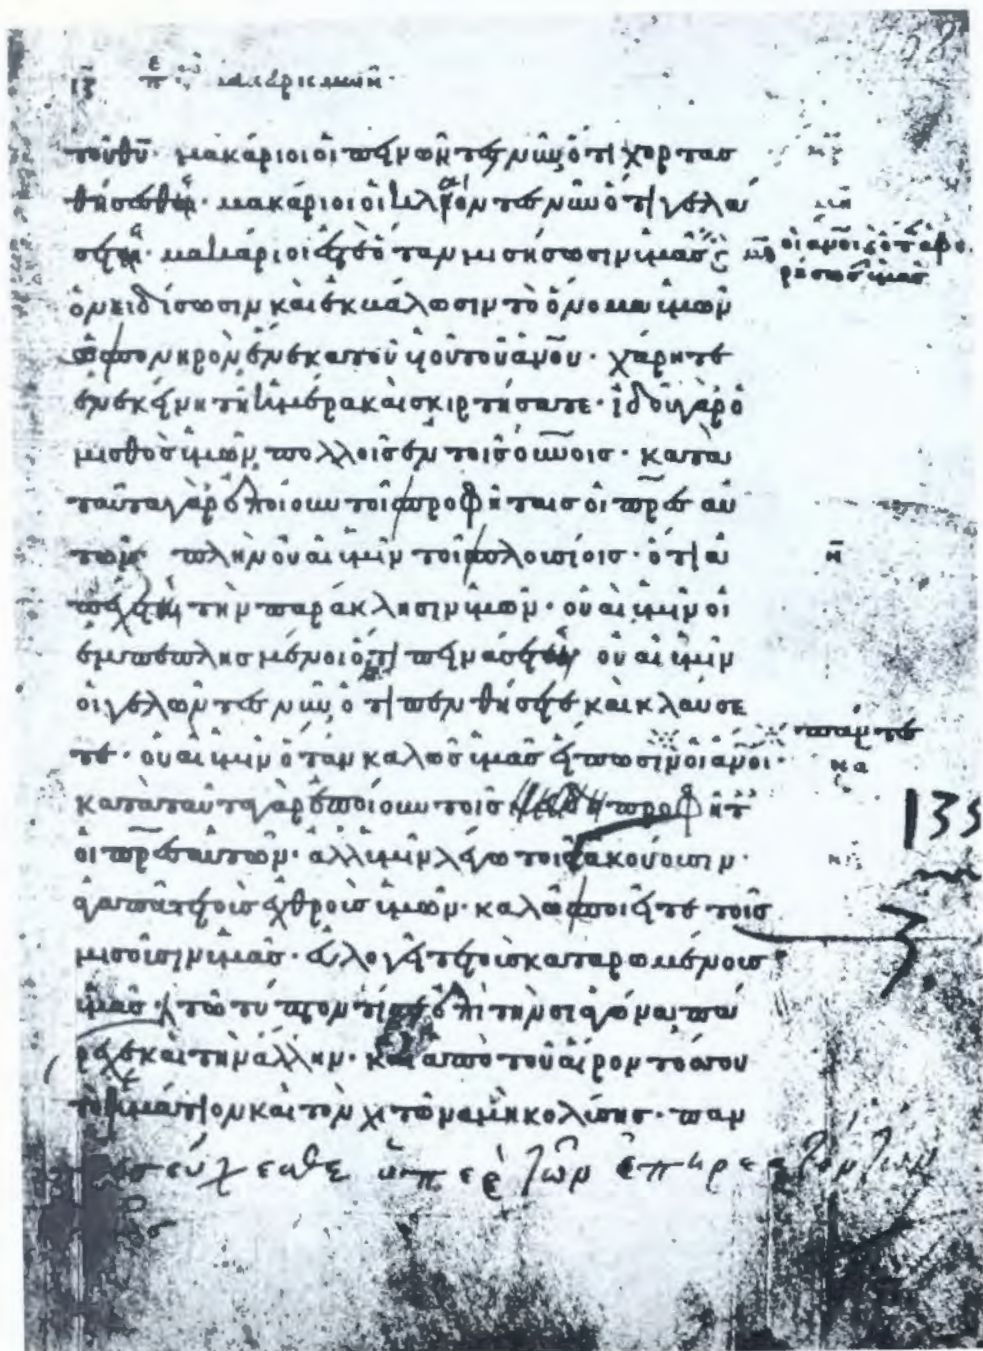 ιζ ε π μακαρισμῶν
τοῦ θῦ· μακάριοι οἱ πεινῶντες νῦν ὅτι χορτασ
θήσεσθε· μακάριοι οἱ κλαίοντες νῦν ὅτι γελά
σετε· μακάριοί ἐστε ὅταν μισήσωσιν ὑμᾶς
οἱ ἀνοι κ ὅταν ἀφο
ρήσωσιν ὑμᾶς
ὀνειδίσωσιν καὶ ἐκβάλωσιν τὸ ὄνομα ὑμῶν
ὡς πονηρὸν ἕνεκα τοῦ υἱοῦ τοῦ ἀνου· χάρητε
ἐν ἐκείνῃ τῇ ἡμέρα καὶ σκιρτήσατε· ἰδοὺ γὰρ ὁ
μισθὸς ὑμῶν πολλοῖς ἐν τοῖς οὐνοις· κατὰ
ταῦτα γὰρ ἐποίουν τοῖς προφήταις οἱ πρες αὐ
τῶν· πλὴν οὐαὶ ὑμῖν τοῖς πλουσίοις· ὅτι ἀ
πέχετε τὴν παράκλησιν ὑμῶν· οὐαὶ ὑμῖν οἱ
ἐμπεπλησμένοι ὅτι πεινάσετε οὐαὶ ὑμῖν
οἱ γελῶντες νῦν ὅτι πενθήσετε καὶ κλαύσε
τε· οὐαὶ ὑμῖν ὅταν καλῶς ὑμᾶς εἴπωσιν οἱ ἀνοι·
πάντες
κατὰ ταῦτα γὰρ ἐποίουν τοῖς προφήτ
135
οἱ πρες αὐτῶν· ἀλλ ὑμῖν λέγω τοῖς ἀκούουσιν·
ἀγαπᾶτε τοὺς ἐχθροὺς ὑμῶν· καλῶς ποιεῖτε τοῖς
μισοῦσιν ὑμᾶς· εὐλογεῖτε τοὺς καταρωμένους
ὑμᾶς· τῶ τύπτοντί σε ἐπὶ τὴν σιαγόνα πά
ρεχε καὶ τὴν ἄλλην· καὶ ἀπὸ τοῦ αἴροντός σου
τὸ ἱμάτιον καὶ τὸν χιτῶνα μὴ κολύσης· παν
εύχεσθε ὑπὲρ τῶν ἐπηρεαζόντων